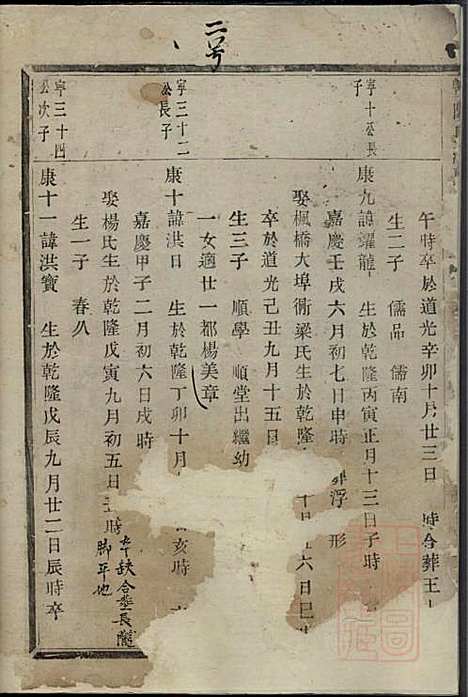 二号
午時卒於道光辛卯十月廿三日 時合葬王
生二子 儒品 儒南
寧十公長子
康九諱躍龍 生於乾隆丙寅正月十三日子時
嘉慶壬戌六月初七日申時 浮形
娶楓橋大埠衕梁氏生於乾隆 十日 六日巳
卒於道光己丑九月十五日
生三子 順學 順堂出繼幼
一女適廿一都楊美章
寧三十二公長子
康十諱洪日 生於乾隆丁卯十月 亥時
嘉慶甲子二月初六日戌時
娶楊氏生於乾隆戊寅九月初五日 時
卒缺合塟長隧脚平地
生一子 春八
寧三十四公次子
康十一諱洪寶 生於乾隆戊辰九月廿二日辰時卒